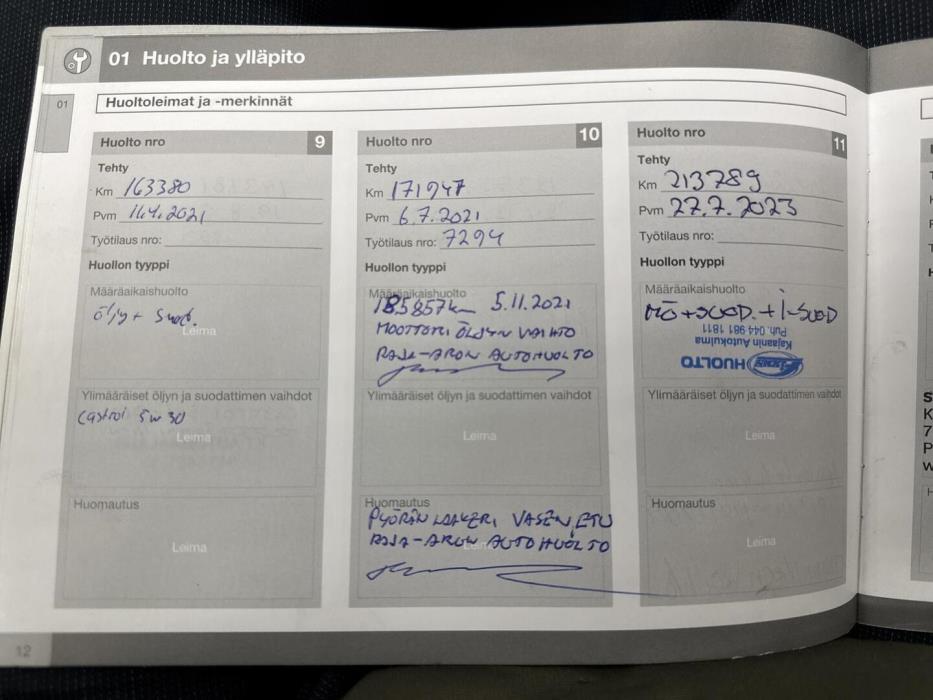 01 Huolto ja ylläpito
01
Huoltoleimat ja -merkinnät
Huolto nro 9
Tehty
Km 163380
Pvm 11.4.2021
Työtilaus nro:
Huollon tyyppi
Määräaikaishuolto
öljy + suod.
Leima
Ylimääräiset öljyn ja suodattimen vaihdot
Castrol 5w30
Leima
Huomautus
Leima
Huolto nro 10
Tehty
Km 171947
Pvm 6.7.2021
Työtilaus nro: 7294
Huollon tyyppi
Määräaikaishuolto
185857km 5.11.2021
MOOTTORI ÖLJYN VAIHTO
RAJA-ARON AUTOHUOLTO
Ylimääräiset öljyn ja suodattimen vaihdot
Leima
Huomautus
PYÖRÄN LAAKERI VASEN ETU
RAJA-ARON AUTOHUOLTO
Leima
Huolto nro 11
Tehty
Km 213789
Pvm 27.7.2023
Työtilaus nro:
Huollon tyyppi
Määräaikaishuolto
MÖ+SUOD.+I-SUOD
HUOLTO
Kajaanin Autokulma
Puh. 044 981 1811
Ylimääräiset öljyn ja suodattimen vaihdot
Leima
Huomautus
Leima
12